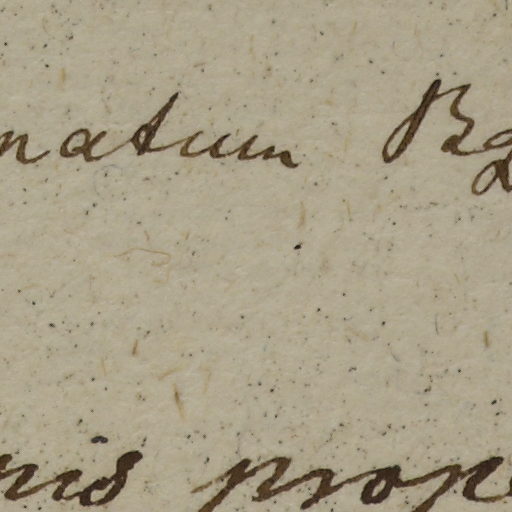 natum Bg
nis prop